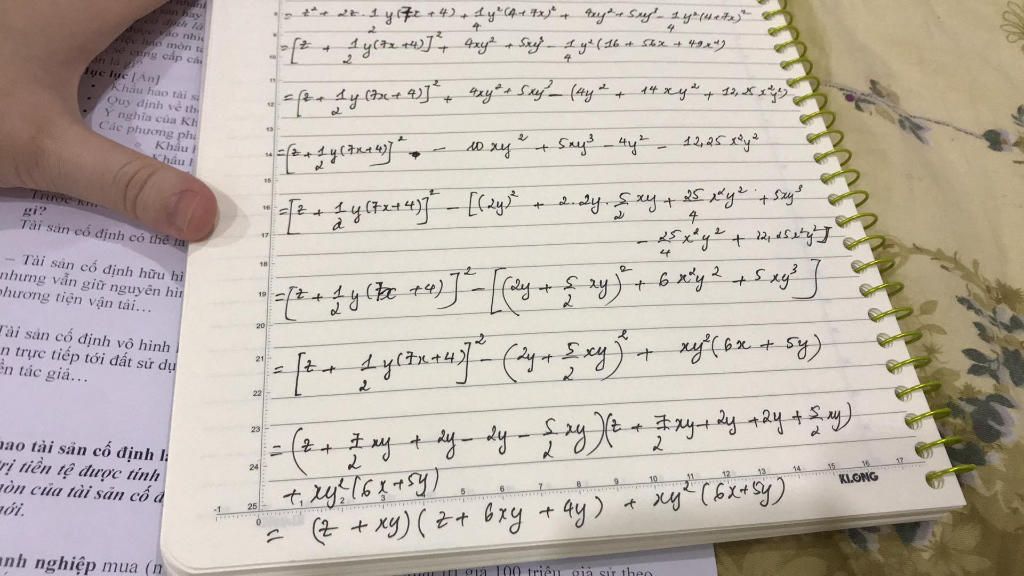 = z² + 2z.1/2 y(7x+4) + 1/4 y²(4+7x)² + 4xy² + 5xy³ - 1/4 y²(4+7x)²
= [z + 1/2 y(7x+4)]² + 4xy² + 5xy³ - 1/4 y²(16 + 56x + 49x²)
= [z + 1/2 y(7x+4)]² + 4xy² + 5xy³ - (4y² + 14xy² + 12,25x²y²)
= [z + 1/2 y(7x+4)]² - 10xy² + 5xy³ - 4y² - 12,25x²y²
= [z + 1/2 y(7x+4)]² - [(2y)² + 2.2y.5/2 xy + 25/4 x²y² + 5xy³
- 25/4 x²y² + 12,25x²y²]
= [z + 1/2 y(7x+4)]² - [(2y + 5/2 xy)² + 6x²y² + 5xy³]
= [z + 1/2 y(7x+4)]² - (2y + 5/2 xy)² + xy²(6x + 5y)
= (z + 7/2 xy + 2y - 2y - 5/2 xy)(z + 7/2 xy + 2y + 2y + 5/2 xy)
+ xy²(6x+5y)
= (z + xy)(z + 6xy + 4y) + xy²(6x+5y)
KLONG
lục [Ẩn]
Khấu hao tài sả
Quy định về th
Ý nghĩa của Kh
Các phương phá
Khấu h
Khấu h
Trước khi
gì?
Tài sản cố định có thể là
– Tài sản cố định hữu hì
nhưng vẫn giữ nguyên hìn
phương tiện vận tải…
Tài sản cố định vô hình
n trực tiếp tới đất sử dụ
ền tác giả…
hao tài sản cố định l
trị tiền tệ được tính
mòn của tài sản cố đ
mới.
anh nghiệp mua (m
trị giá 100 triệu, giả sử theo